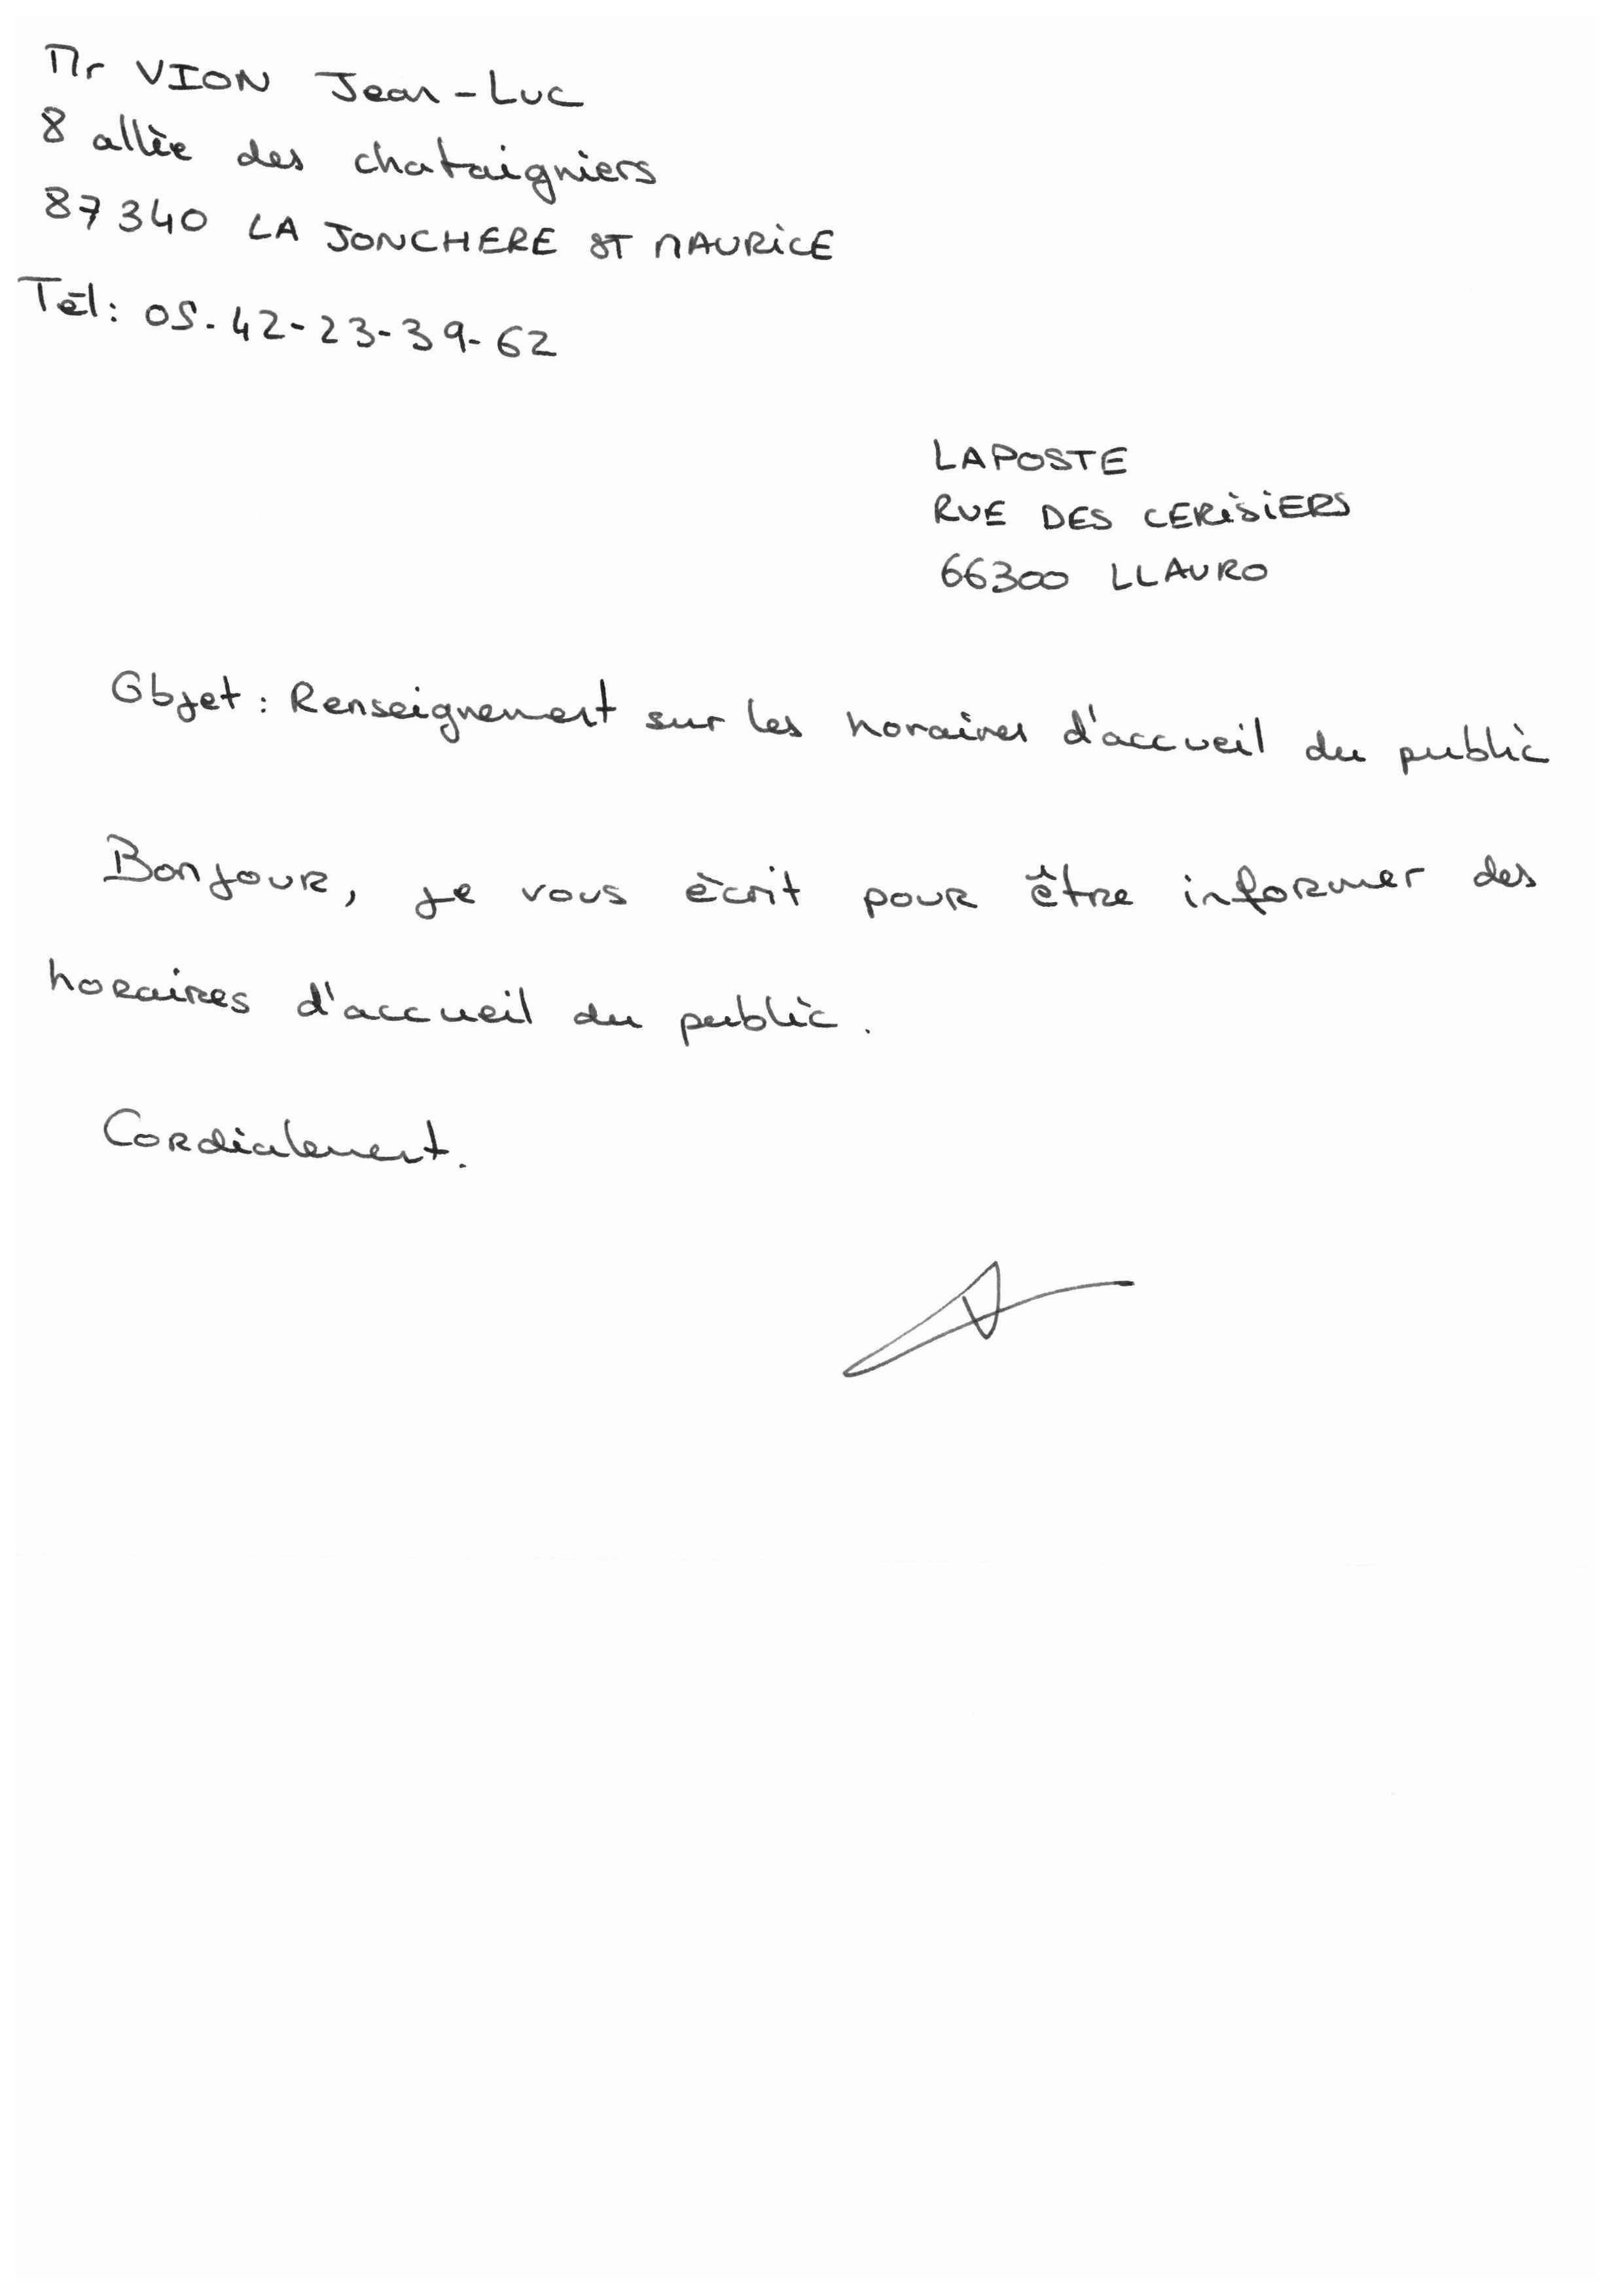 Mr VION Jean-Luc
8 allée des chataigniers
87340 LA JONCHERE ST MAURICE
Tél: 05-42-23-39-62
LAPOSTE
RUE DES CERISIERS
66300 LLAURO
Objet : Renseignement sur les horaires d'accueil du public
Bonjour, je vous écrit pour être informer des
horaires d'accueil du public.
Cordialement.